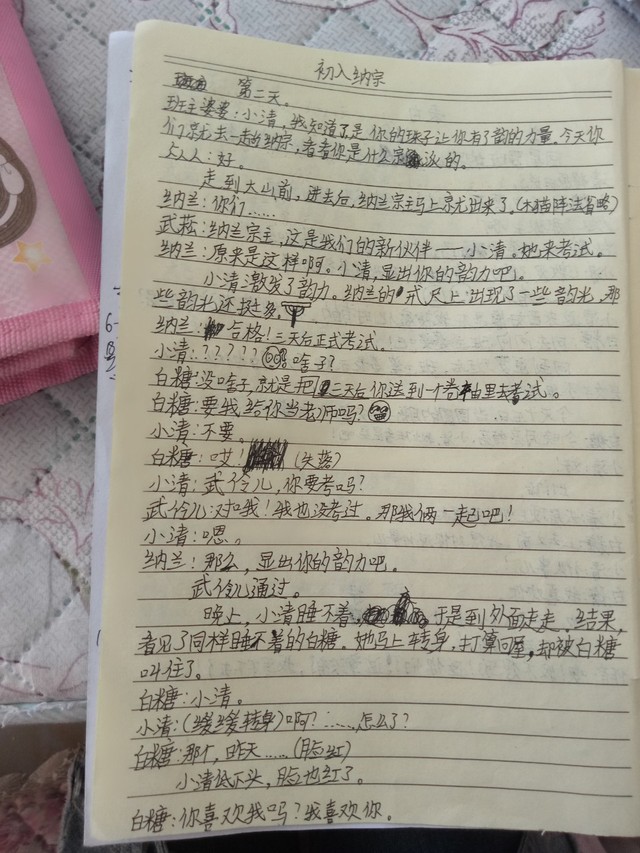 初入纳宗
第二天。
班主婆婆：小清，我知道了是你的珠子让你有了韵的力量。今天你
们就去一趟纳宗，看看你是什么宗派的。
众人：好。
走到大山前，进去后，纳兰宗主马上就出来了。（木猫阵法省略）
纳兰：你们……
武菘：纳兰宗主，这是我们的新伙伴——小清。她来考试。
纳兰：原来是这样啊。小清，显出你的韵力吧。
小清激发了韵力。纳兰的戒尺上出现了一些韵光，那
些韵光还挺多。
纳兰：合格！三天后正式考试。
小清：？？？？？啥子？
白糖：没啥子，就是把三天后你送到一个卷轴里去考试。
白糖：要我给你当老师吗？
小清：不要。
白糖：哎！（失落）
小清：武伶儿，你要考吗？
武伶儿：对哦！我也没考过。那我俩一起吧！
小清：嗯。
纳兰：那么，显出你的韵力吧。
武伶儿通过。
晚上，小清睡不着，于是到外面走走，结果，
看见了同样睡不着的白糖。她马上转身，打算回屋，却被白糖
叫住了。
白糖：小清。
小清：（缓缓转身）啊？……怎么了？
白糖：那个，昨天……（脸红）
小清低下头，脸也红了。
白糖：你喜欢我吗？我喜欢你。